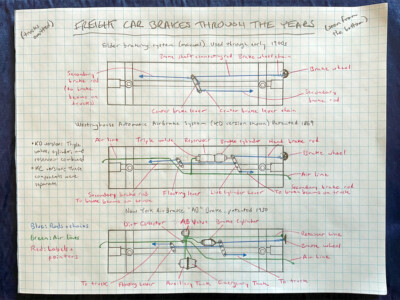 FREIGHT CAR BRAKES THROUGH THE YEARS
(trucks omitted)
(seen from the bottom)
Older braking system (manual) Used through early 1900s
Brake wheel
Secondary brake rod (to brake beams on trucks)
Secondary brake rod
Center brake lever
Center brake lever chain
Westinghouse Automatic Airbrake System (KD version shown) Patented 1869
Air line
Triple valve
Reservoir
Brake cylinder
Hand brake rod
Brake wheel
• KD version: Triple valve, cylinder, and reservoir combined
• KC version: Those components were separate
Air line
Secondary brake rod to brake beams on trucks
Floating lever
Live cylinder lever
Secondary brake rod to brake beams on trucks
New York Air Brake "AB" Brake, patented 1930
Blue: Rods, etc.
Green: Air lines
Red: Labels, pointers
Dirt Collector
AB Valve
Brake Cylinder
Retainer line
Brake wheel
Air line
To truck
Floating lever
Auxiliary Tank
Emergency Tank
To truck